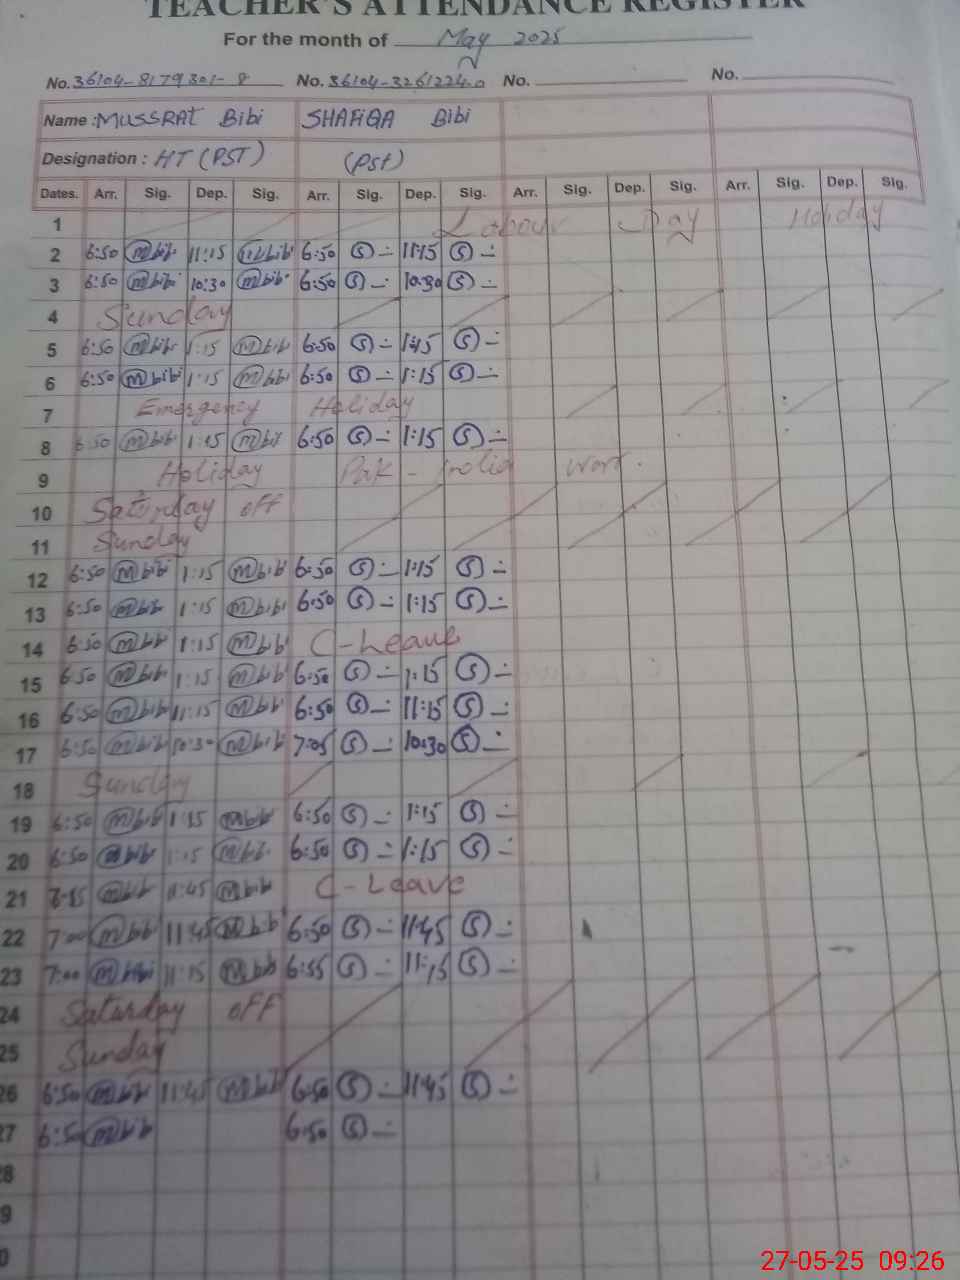 TEACHER'S ATTENDANCE REGISTER
For the month of May 2025
No. 36104-8179301-8 No. 36104-3261224-0 No. No.
Name : MUSSRAT Bibi SHAFIQA Bibi
Designation : HT (PST) (PST)
Dates. Arr. Sig. Dep. Sig. Arr. Sig. Dep. Sig. Arr. Sig. Dep. Sig. Arr. Sig. Dep. Sig.
1 Labour Day Holiday
2 6:50 m bibi 11:15 m bibi 6:50 S 11:15 S
3 6:50 m bibi 10:30 m bibi 6:50 S 10:30 S
4 Sunday
5 6:50 m bibi 1:15 m bibi 6:50 S 1:15 S
6 6:50 m bibi 1:15 m bibi 6:50 S 1:15 S
7 Emergency Holiday
8 6:50 m bibi 1:15 m bibi 6:50 S 1:15 S
9 Holiday Pak - India war.
10 Saturday off
11 Sunday
12 6:50 m bibi 1:15 m bibi 6:50 S 1:15 S
13 6:50 m bibi 1:15 m bibi 6:50 S 1:15 S
14 6:50 m bibi 1:15 m bibi C-Leave
15 6:50 m bibi 1:15 m bibi 6:50 S 1:15 S
16 6:50 m bibi 11:15 m bibi 6:50 S 11:15 S
17 6:50 m bibi 10:30 m bibi 7:05 S 10:30 S
18 Sunday
19 6:50 m bibi 1:15 m bibi 6:50 S 1:15 S
20 6:50 m bibi 1:15 m bibi 6:50 S 1:15 S
21 7:15 m bibi 11:45 m bibi C-Leave
22 7:00 m bibi 11:45 m bibi 6:50 S 11:45 S
23 7:00 m bibi 11:15 m bibi 6:55 S 11:15 S
24 Saturday off
25 Sunday
26 6:50 m bibi 11:45 m bibi 6:50 S 11:45 S
27 6:50 m bib 6:50 S
8
9
0
27-05-25 09:26